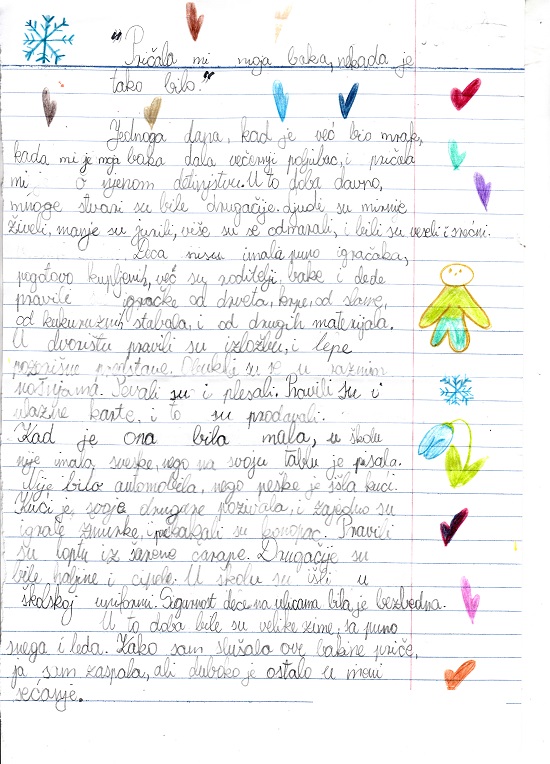 "Pričala mi moja baka, nekada je
tako bilo."
Jednoga dana, kad je već bio mrak,
kada mi je moja baka dala večernji poljubac, i pričala
mi o njenom detinjstvu. U to doba davno,
mnoge stvari su bile drugačije. Ljudi su mirnije
živeli, manje su jurili, više su se odmarali, i bili su veseli i srećni.
Deca nisu imala puno igračaka,
pogotovo kupljenih, već su roditelji, bake i dede
pravili igračke od drveta, krpe, od slame,
od kukuruznih stabala, i od drugih materijala.
U dvorištu pravili su izložbu, i lepe
pozorišne predstave. Obukli su se u raznim
nošnjama. Pevali su i plesali. Pravili su i
ulazne karte, i to su prodavali.
Kad je ona bila mala, u školu
nije imala sveske, nego na svoju tablu je pisala.
Nije bilo automobila, nego peške je išla kući.
Kući je svoje drugare pozivala, i zajedno su
igrale žmurke, i preskakali su konopac. Pravili
su loptu iz šarene čarape. Drugačije su
bile haljine i cipele. U školu su išli u
školskoj uniformi. Sigurnost dece na ulicama bila je bezbedna.
U to doba bile su velike zime, sa puno
snega i leda. Kako sam slušala ove bakine priče,
ja sam zaspala, ali duboko je ostalo u meni
sećanje.